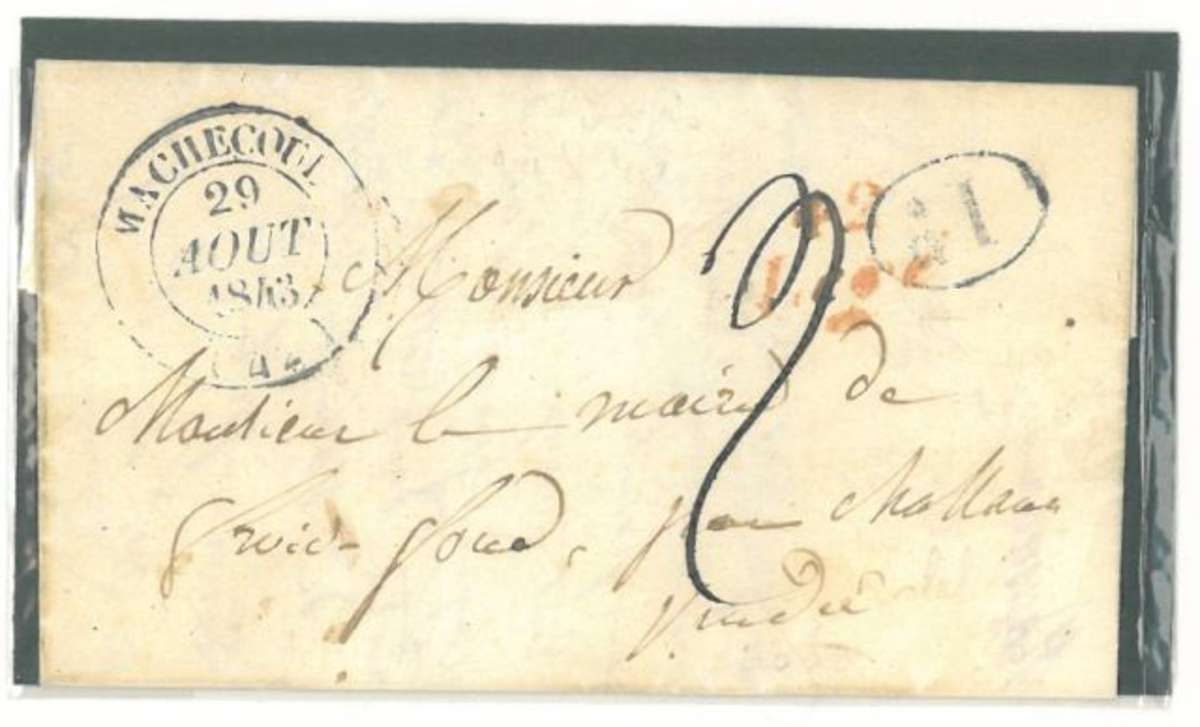 MACHECOUL
29
AOUT
1843
Monsieur
Monsieur le maire de
froid-fond, par Challans